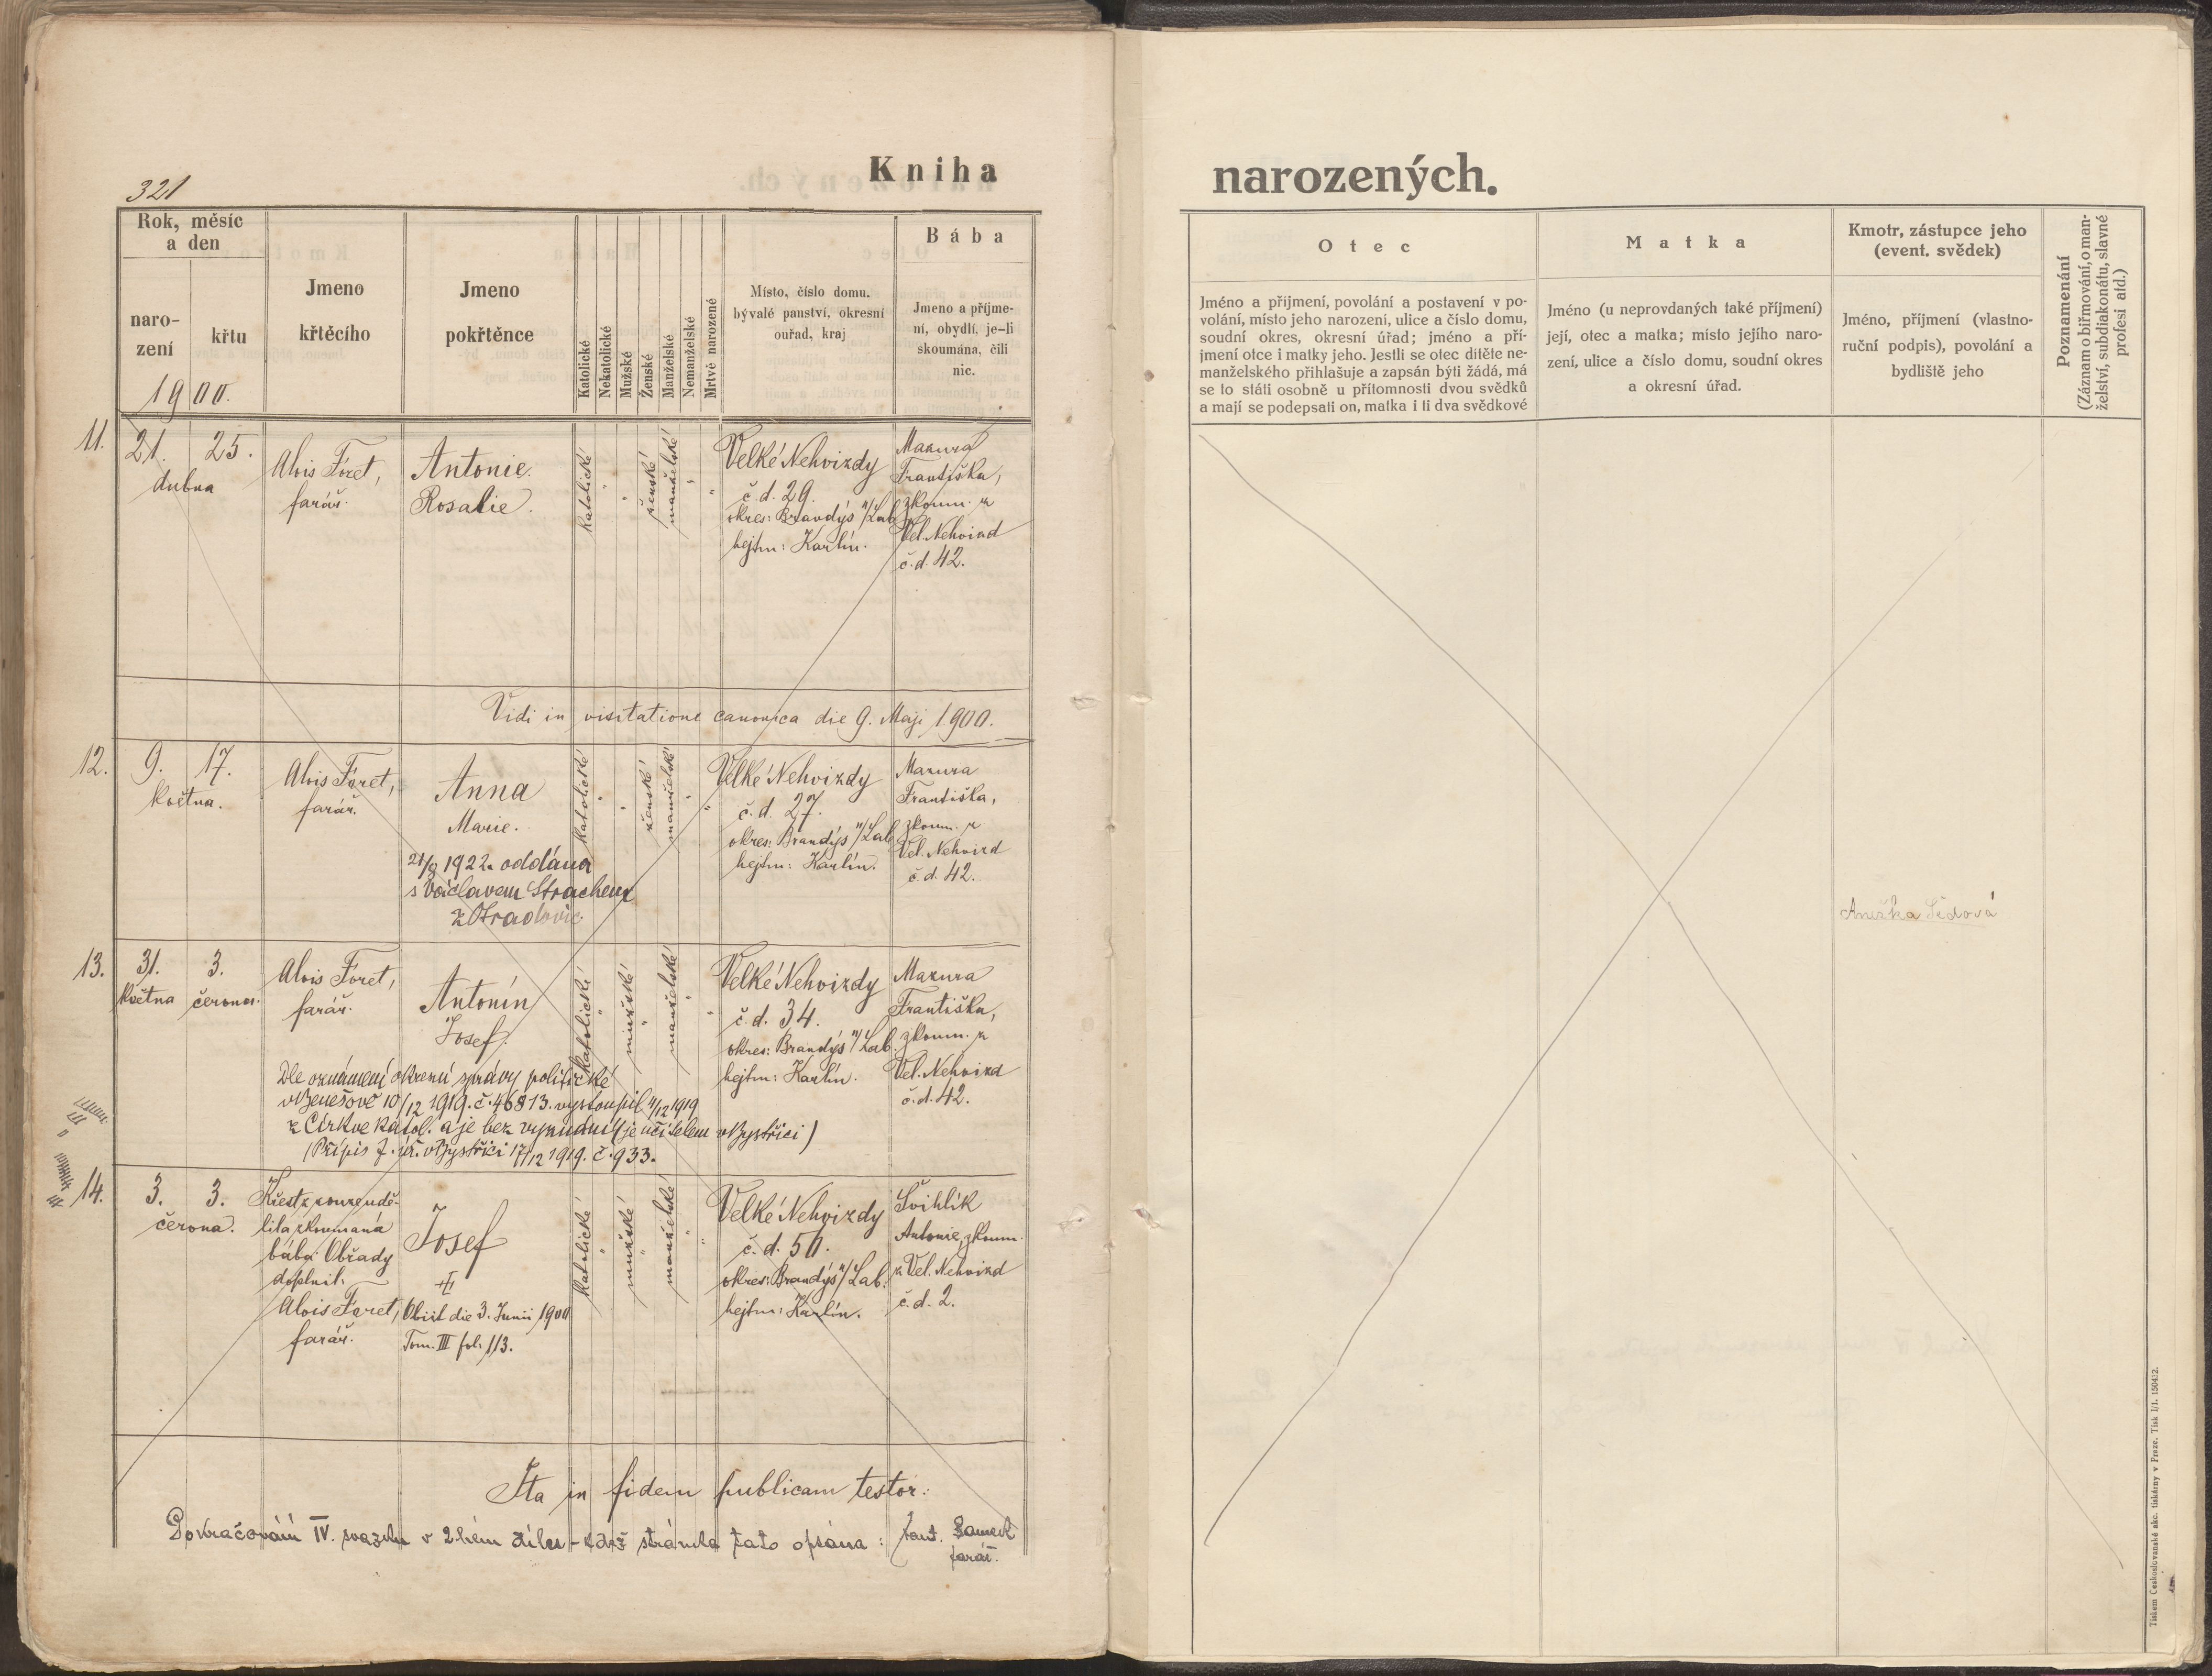 321
Kniha
Rok, měsíc
a den
naro-
zení
křtu
1900.
Jmeno
křtěcího
Jmeno
pokřtěnce
Katolické
Nekatolické
Mužské
Ženské
Manželské
Nemanželské
Mrtvě narozené
Místo, číslo domu.
bývalé panství, okresní
ouřad, kraj
Bába
Jmeno a příjme-
ní, obydlí, je-li
skoumána, čili
nic.
11.
21. 25.
dubna
Alois Foret,
farář.
Antonie.
Rosalie.
katolické
ženské
manželské
Velké Nehvizdy
č. d. 29.
okres: Brandýs n/Lab.
hejtm: Karlín.
Mazura
Františka,
zkoum. z
Vel. Nehvizd
č. d. 42.
Vidi in visitatione canonica die 9. Maji 1900.
12.
9. 17.
května.
Alois Foret,
farář.
Anna
Marie.
21/8 1922 oddána
s Václavem Strachem
z
katolické
ženské
manželské
Velké Nehvizdy
č. d. 27.
okres: Brandýs n/Lab
hejtm: Karlín.
Mazura
Františka,
zkoum. z
Vel. Nehvizd
č. d. 42.
13.
31. 3.
května června.
Alois Foret,
farář.
Antonín
Josef.
katolické
mužské
manželské
Velké Nehvizdy
č. d. 34.
okres: Brandýs n/Lab.
hejtm: Karlín.
Mazura
Františka,
zkoum. z
Vel. Nehvizd
č. d. 42.
Dle oznámení okresní správy politické
v Benešově 10/12 1919. č. 46813. vystoupil 4/12 1919
z Církve katol. a je bez vyznání (je učitelem v Bystřici)
(Přípis f. úř. v Bystřici 17/12 1919. č. 933.
14.
3. 3.
června.
Křest z nouze udě-
lila zkoumaná
bába. Obřady
doplnil.
Alois Foret,
farář.
Josef
Obiit die 3. Junii 1900
Tom. III fol. 113.
katolické
mužské
manželské
Velké Nehvizdy
č. d. 50.
okres: Brandýs n/Lab.
hejtm: Karlín.
Švihlík
Antonie, zkoum.
z Vel. Nehvizd
č. d. 2.
Ita in fidem publicam testor:
Pokračování IV. svazku v 2hém dílu - kdež stránka tato opsána: Frant. Samek
farář.
narozených.
Otec
Jméno a přijmení, povolání a postavení v po-
volání, místo jeho narození, ulice a číslo domu,
soudní okres, okresní úřad; jméno a pří-
jmení otce i matky jeho. Jestli se otec dítěte ne-
manželského přihlašuje a zapsán býti žádá, má
se to státi osobně u přítomnosti dvou svědků
a mají se podepsati on, matka i ti dva svědkové
Matka
Jméno (u neprovdaných také příjmení)
její, otec a matka; místo jejího naro-
zení, ulice a číslo domu, soudní okres
a okresní úřad.
Kmotr, zástupce jeho
(event. svědek)
Jméno, příjmení (vlastno-
ruční podpis), povolání a
bydliště jeho
Poznamenání
(Záznam o biřmování, o man-
želství, subdiakonátu, slavné
profesi atd.)
Anežka Šídová
Tiskem Československé akc. tiskárny v Praze. Tisk I/1. 150412.